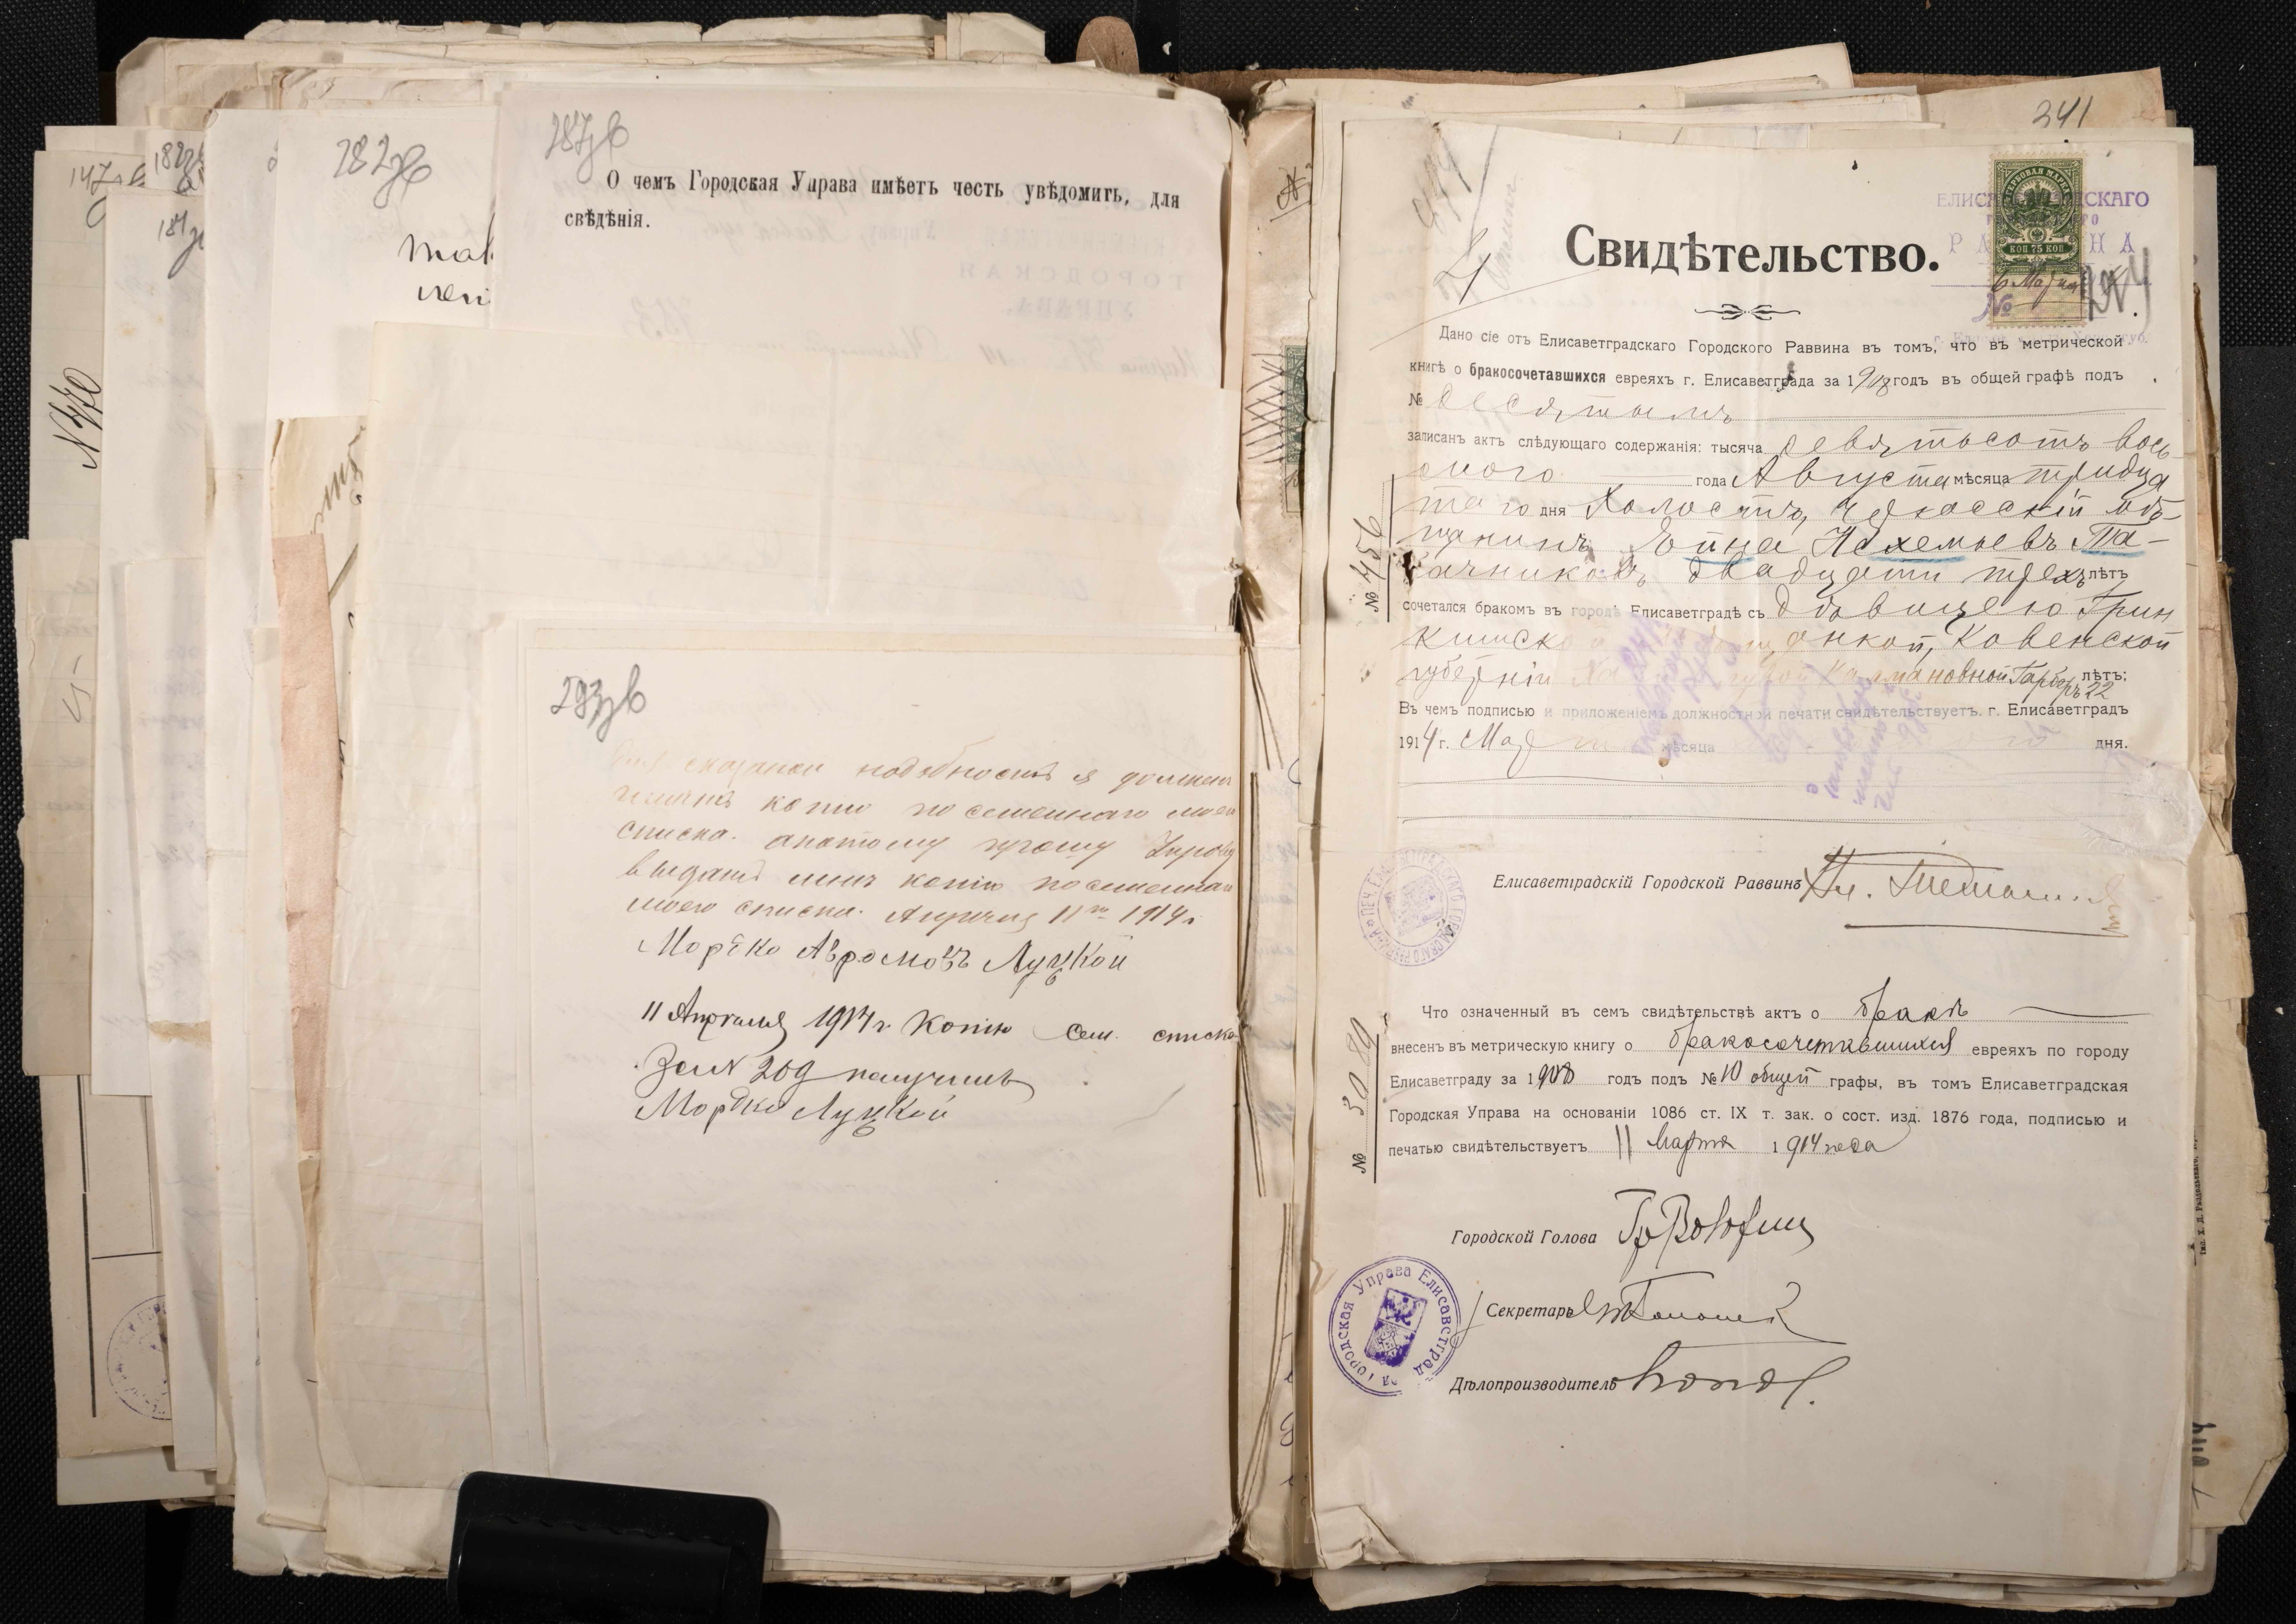 147
182
187
N 770
282 зв
287 зв
О чемъ Городская Управа имѣетъ честь увѣдомить, для
свѣдѣнія.
293 зв
сказаной надобности я долженъ
имѣть копію посемейнаго моего
списка. апатому прошу Управу
выдать мнѣ копію посемейнаго
моего списка. Апрѣля 11го 1914 г
Мордко Авромовъ Луцкой
11 Апрѣля 1914 г. Копію сем. списка
за N 209 получилъ
Мордко Луцкой
341
294
Свидѣтельство.
ГЕРБОВАЯ МАРКА
75 КОП 75 КОП
6 Марта
№
Дано сіе отъ Елисаветградскаго Городского Раввина въ томъ, что въ метрической
книгѣ о бракосочетавшихся евреяхъ г. Елисаветграда за 1908 годъ въ общей графѣ подъ
№ десятымъ
записанъ актъ слѣдующаго содержанія: тысяча девятьсотъ вось-
мого года Августа мѣсяца тридца
таго дня Холостъ, черкасскій мѣ-
щанинъ Эйна Нехемьевъ Та-
бачниковъ двадцати трехъ лѣтъ
сочетался бракомъ въ городѣ Елисаветградѣ съ дѣвицею Грин
кишск мѣщанкой, Ковенской
губерніи Калмановной Гарберъ 22 лѣтъ;
Въ чемъ подписью и приложеніемъ должностной печати свидѣтельствуетъ. г. Елисаветградъ
1914 г. Марта мѣсяца дня.
№ 456
Елисаветградскій Городской Раввинъ
Что означенный въ семъ свидѣтельствѣ актъ о бракѣ
внесенъ въ метрическую книгу о бракосочетавшихся евреяхъ по городу
Елисаветграду за 1908 годъ подъ № 10 общей графы, въ томъ Елисаветградская
Городская Управа на основаніи 1086 ст. IX т. зак. о сост. изд. 1876 года, подписью и
печатью свидѣтельствуетъ 11 Марта 1914 года
№ 3089
Городской Голова
Секретарь
Дѣлопроизводитель
Городская Управа Елисаветград